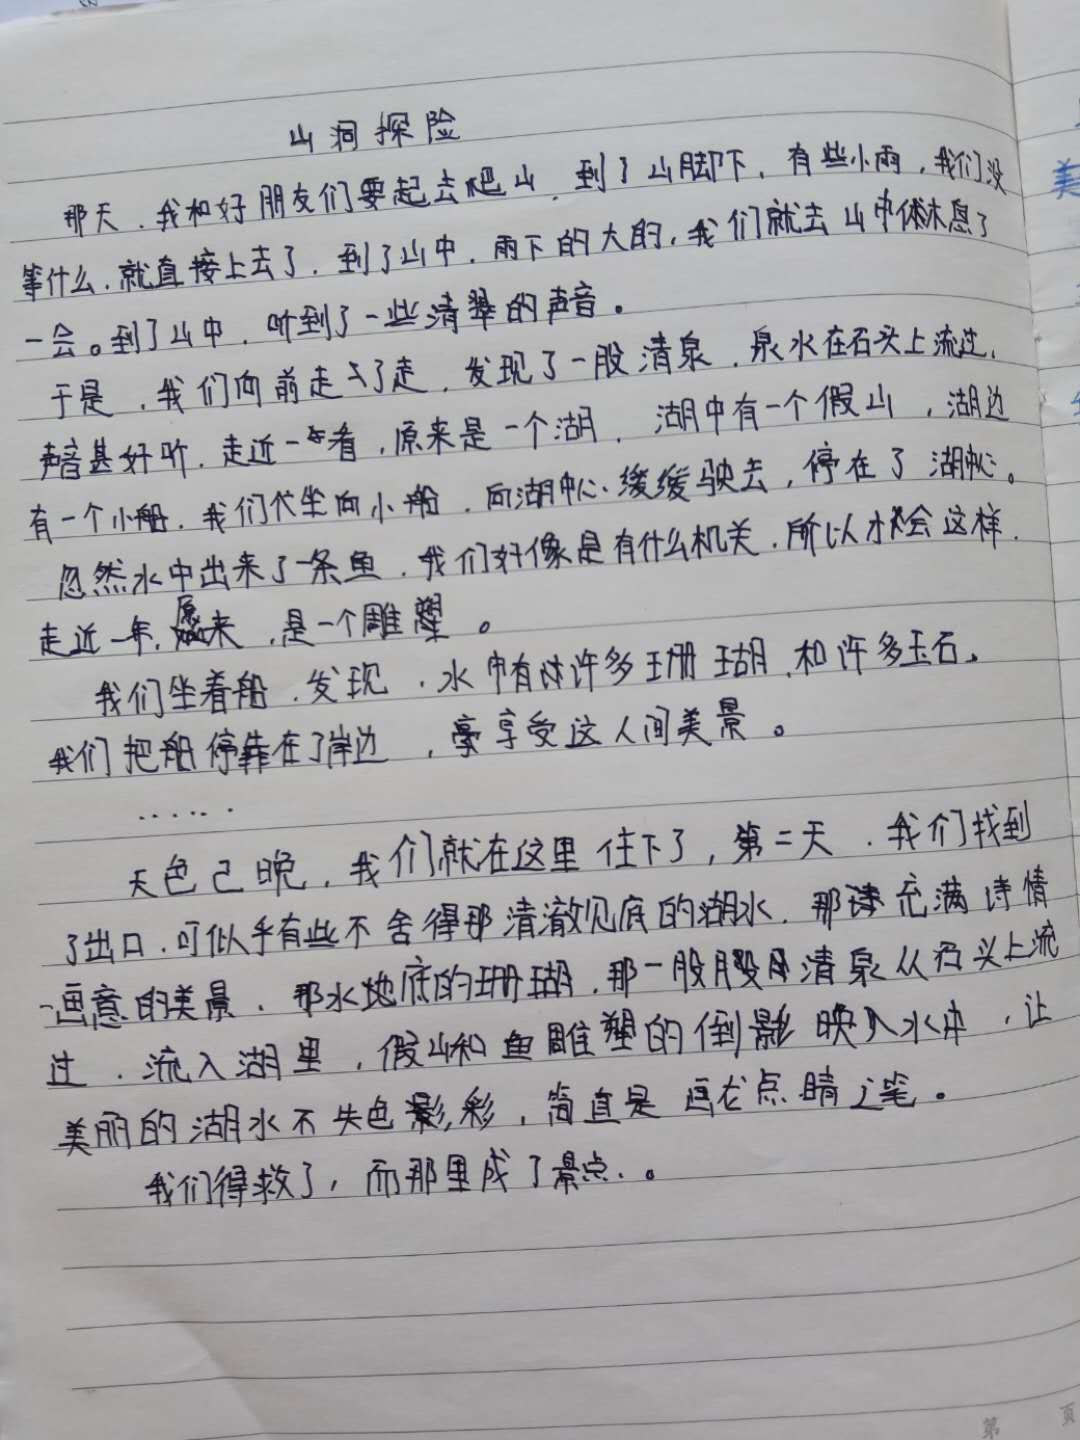 山洞探险
那天，我和好朋友们要起去爬山，到了山脚下，有些小雨，我们没
等什么，就直接上去了，到了山中，雨下的大的，我们就去山中休息了
一会。到了山中，听到了一些清翠的声音。
于是，我们向前走了走，发现了一股清泉，泉水在石头上流过，
声音甚好听，走近一看，原来是一个湖，湖中有一个假山，湖边
有一个小船，我们坐向小船，向湖中心缓缓驶去，停在了湖中心。
忽然水中出来了一条鱼，我们好像是有什么机关，所以才会这样，
走近一年，原来，是一个雕塑。
我们坐着船，发现，水中有许多珊瑚，和许多玉石。
我们把船停靠在了岸边，享受这人间美景。
......
天色已晚，我们就在这里住下了，第二天，我们找到
了出口，可似乎有些不舍得那清澈见底的湖水，那充满诗情
画意的美景，那水地底的珊瑚，那一股股清泉从石头上流
过，流入湖里，假山和鱼雕塑的倒影映入水中，让
美丽的湖水不失色彩，简直是画龙点睛之笔。
我们得救了，而那里成了景点。
第 页